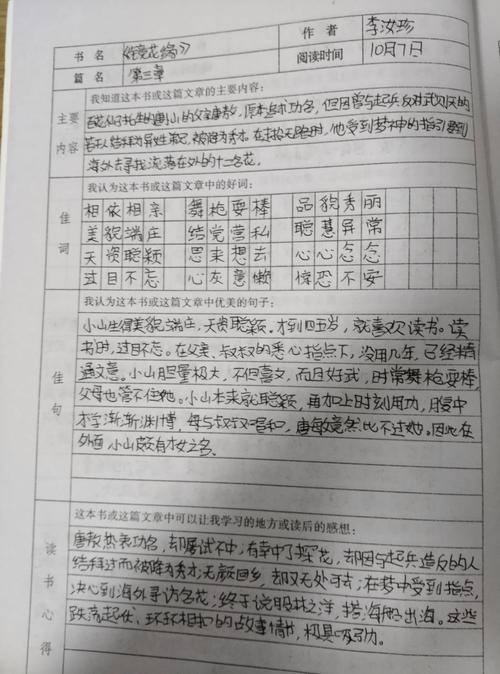 书名 《镜花缘》 作者 李汝珍
篇名 第三章 阅读时间 10月7日
主要内容
我知道这本书或这篇文章的主要内容:
百花仙子托生的唐小山的父亲唐敖,原本考中功名,但因曾与起兵反对武则天的
若干人结拜为异姓弟兄,被降为秀才。在走投无路时,他受到梦神的指引要到
海外去寻找流落在外的十二名花。
佳词
我认为这本书或这篇文章中的好词:
相依相亲 舞枪耍棒 品貌秀丽
美貌端庄 结党营私 聪慧异常
天资聪颖 思来想去 心心念念
过目不忘 心灰意懒 惶恐不安
佳句
我认为这本书或这篇文章中优美的句子:
小山生得美貌端庄,天资聪颖。才到四五岁,就喜欢读书。读
书时,过目不忘。在父亲、叔叔的悉心指点下,没用几年,已经精
通文意。小山胆量极大,不但喜文,而且好武,时常舞枪耍棒,
父母也管不住她。小山本来就聪颖,再加上时刻用功,腹中
才学渐渐渊博,每与叔叔唱和,唐敏竟然比不过她。因此在
外面小山颇有才女之名。
读书心得
这本书或这篇文章中可以让我学习的地方或读后的感想:
唐敖热衷功名,却屡试不中;有幸中了探花,却因与起兵造反的人
结拜过而被降为秀才;无颜回乡,却又无处可去;在梦中受到指点,
决心到海外寻访名花;终于说服林之洋,搭海船出海。这些
跌宕起伏、环环相扣的故事情节,极具吸引力。